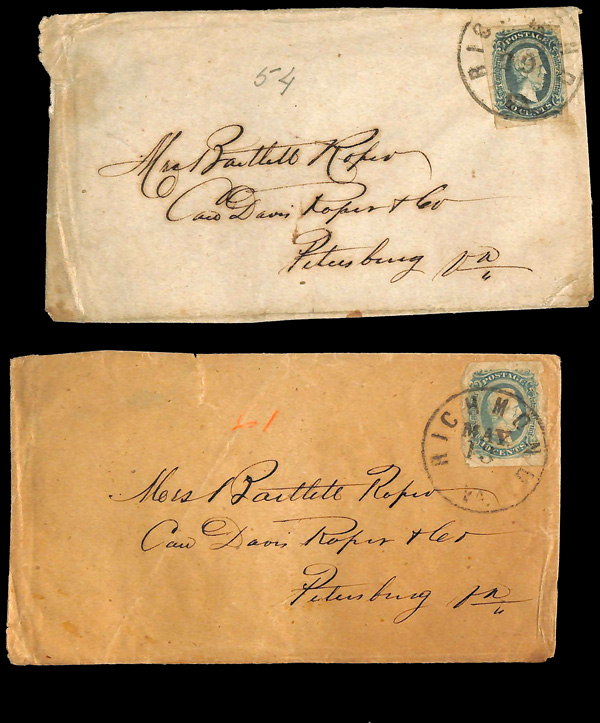 RICHMOND
POSTAGE
10 CENTS
54
Mrs Bartlett Roper
Care Davis Roper & Co
Petersburg Va
POSTAGE
RICHMOND
MAY
10 CENTS
VA.
61
Mrs Bartlett Roper
Care Davis Roper & Co
Petersburg Va